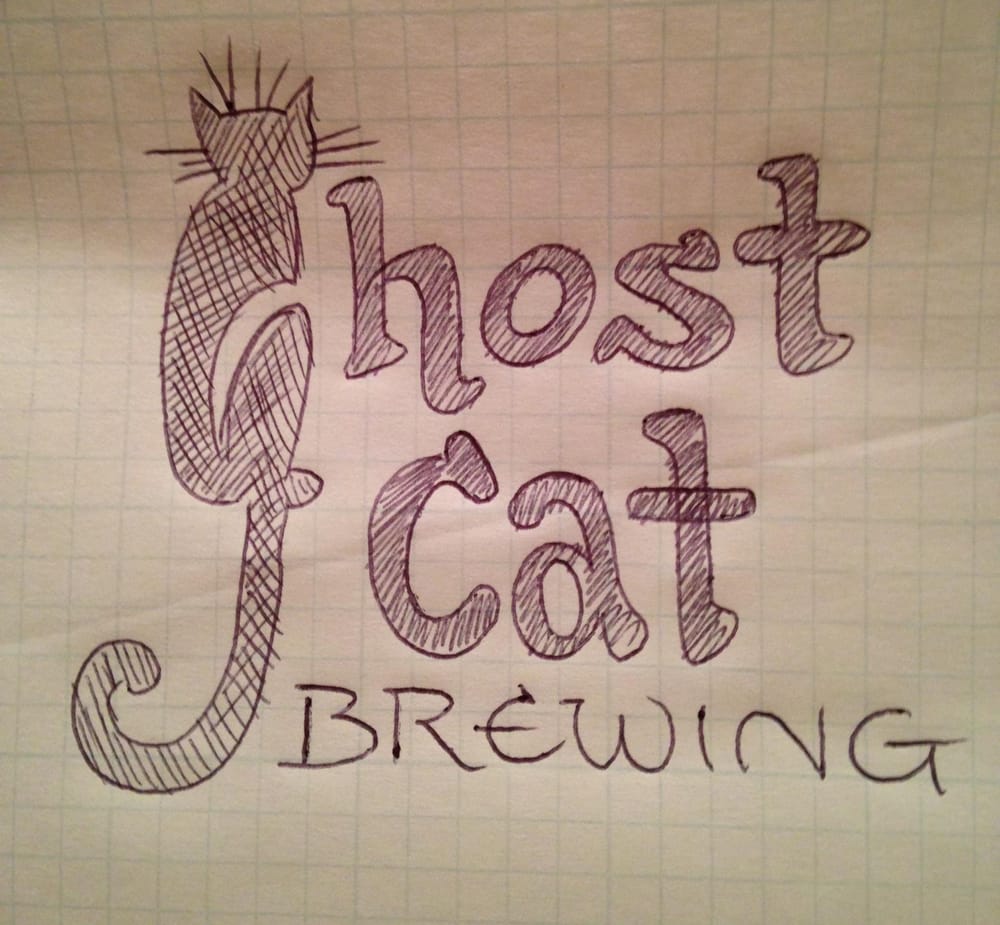 ghost
cat
BREWING